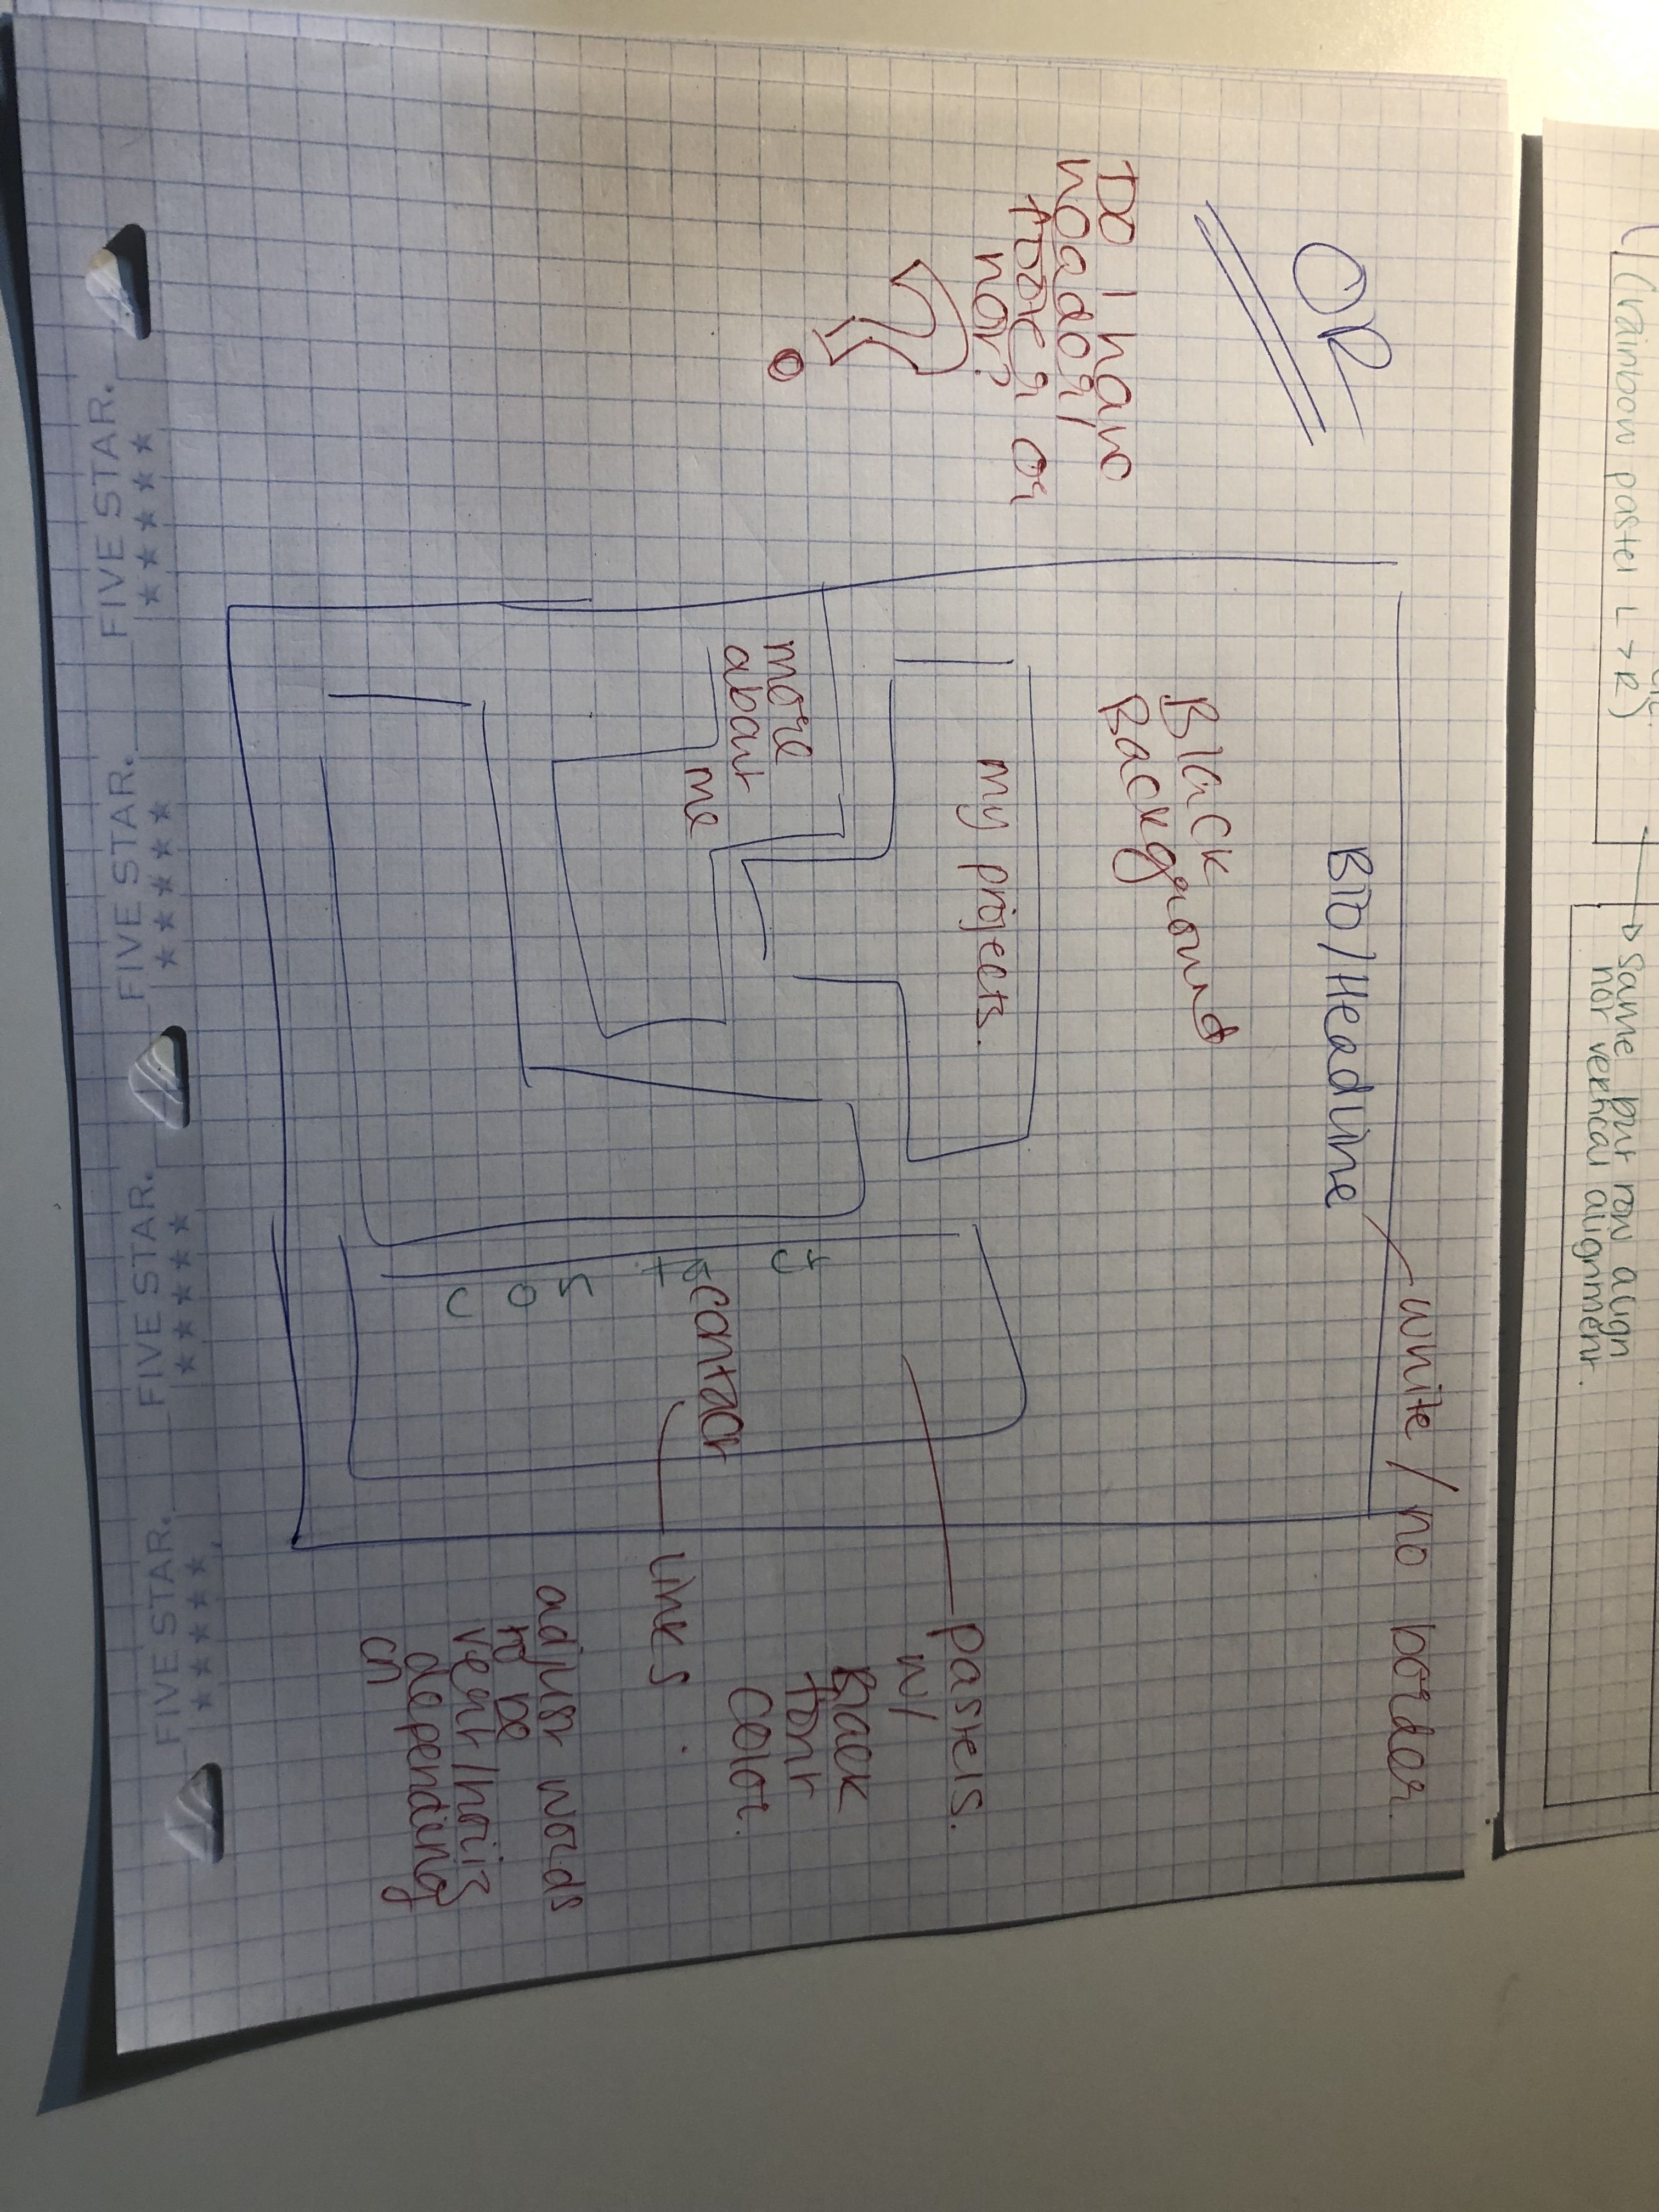 (rainbow pastel L > R)
Same but row align
not vertical alignment.
OR
Do I have
header/
footer or
not?
?
Bio/Headline
white / no border.
Black
Background
my projects.
more
about
me
contact
contact
pastels.
w/
Black
font
color.
links
adjust words
to be
vert/horiz
depending
on
FIVE STAR.
★★★★★
FIVE STAR.
★★★★★
FIVE STAR.
★★★★★
FIVE STAR.
★★★★★